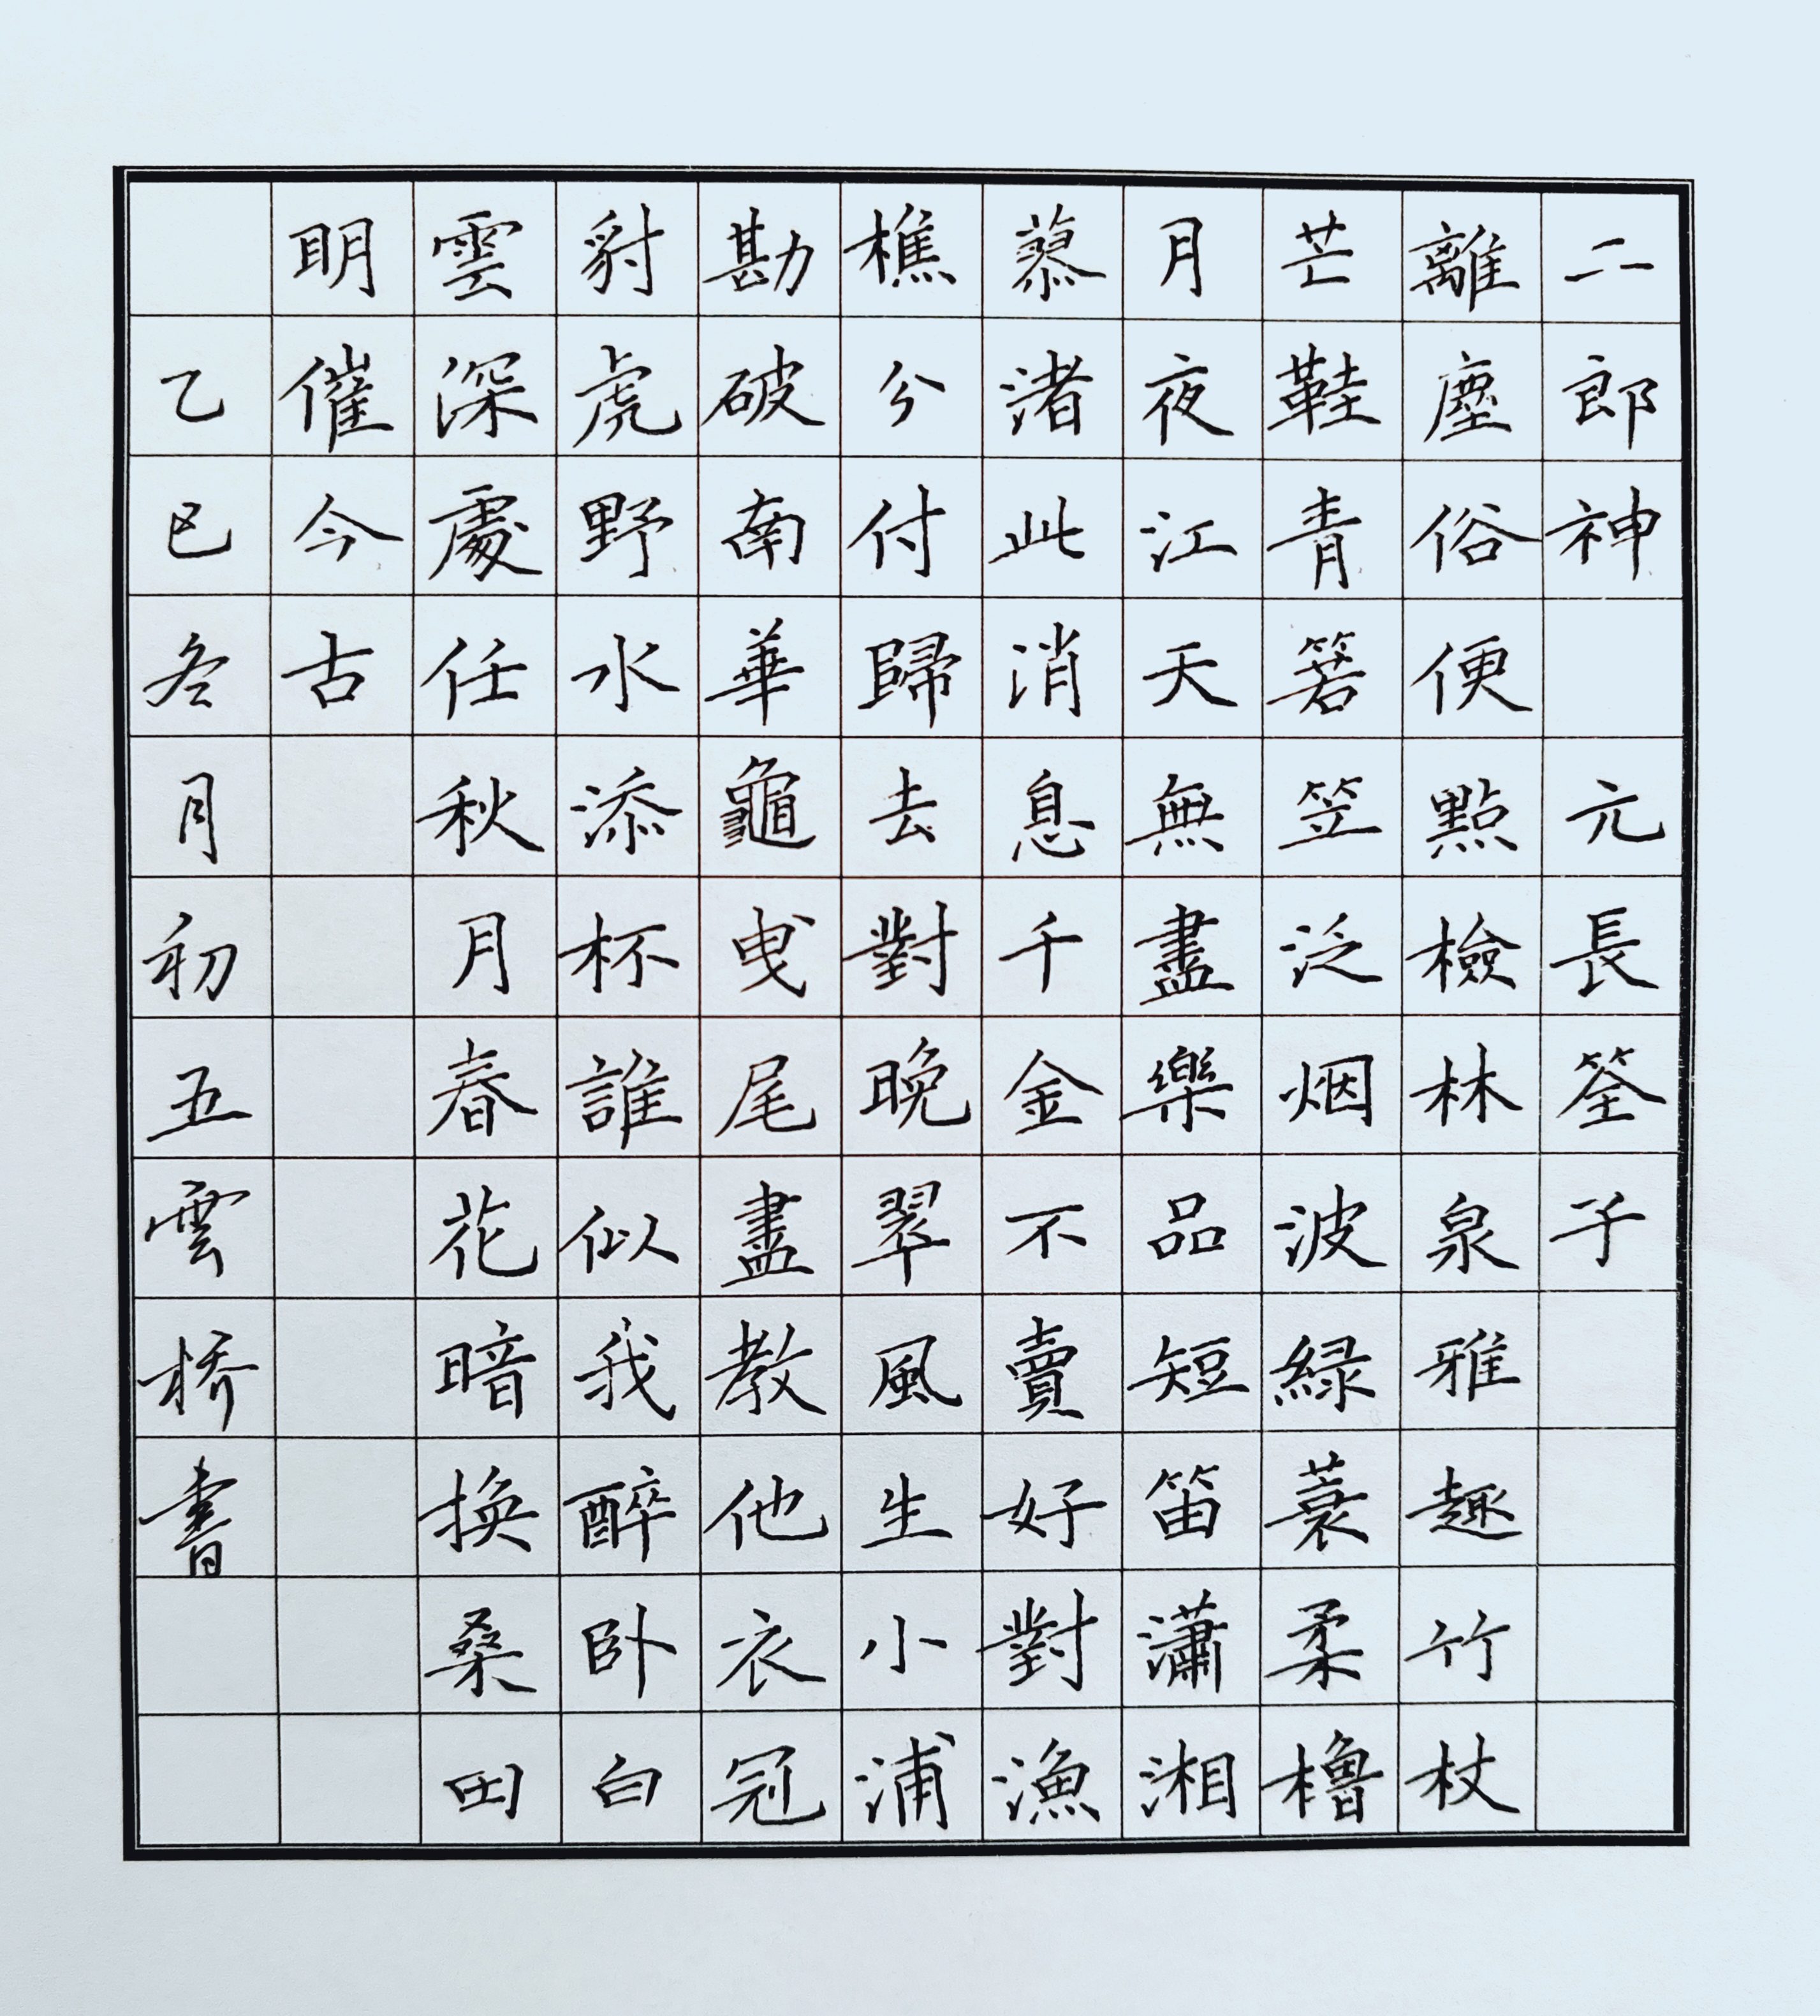 二郎神 元長筌子
離塵俗便點檢林泉雅趣竹杖
芒鞋青箬笠泛烟波綠蓑柔櫓
月夜江天無盡樂品短笛瀟湘
蓼渚此消息千金不賣好對漁
樵分付歸去對晚翠風生小浦
勘破南華龜曳尾盡教他衣冠
豺虎野水添杯誰似我醉卧白
雲深處任秋月春花暗換桑田
明催今古
乙巳冬月初五雲橋書